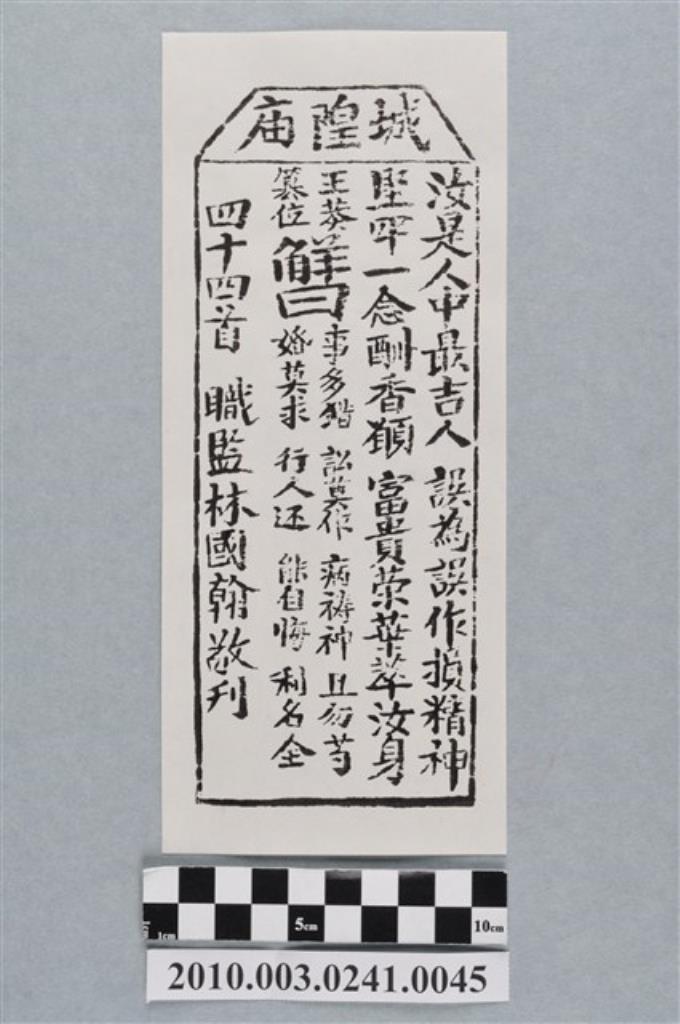 城隍庙
汝是人中最吉人 誤為誤作損精神
堅牢一念酬香願 富貴荣華萃汝身
王莽篡位 解曰 事多錯 訟莫作 病禱神 且勿苟
婚莫求 行人还 能自悔 利名全
四十四首 職監林國翰敬刋
5cm
1cm
10cm
2010.003.0241.0045